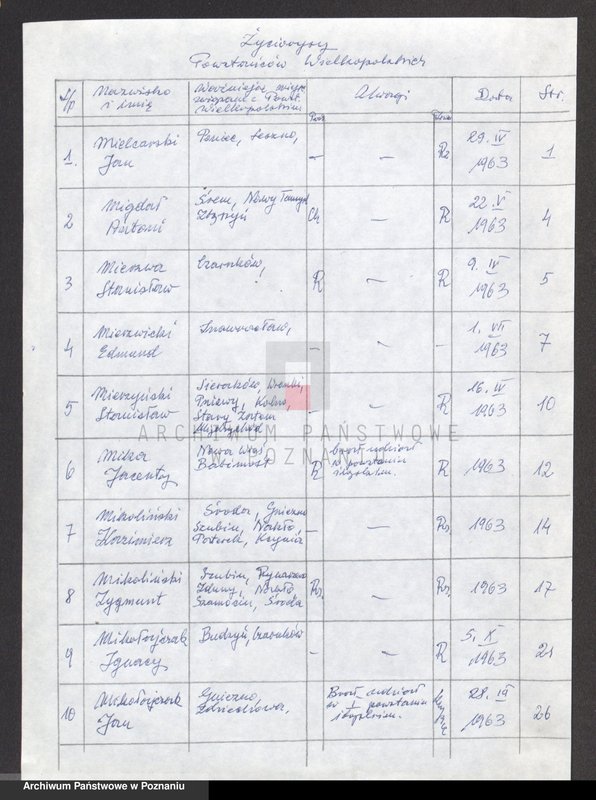 Życiorysy
Powstańców Wielkopolskich
Lp Nazwisko i imię Ważniejsze miejsc. związane z Powst. Wielkopolskim Uwagi Data Str.
1. Mielcarski Jan Poniec, Leszno, – – Rs 29. IV 1963 1
2 Migdał Antoni Śrem, Nowy Tomyśl Zbąszyń Ch – R 22. V 1963 4
3 Mierzwa Stanisław Czarnków, R – R 9. IV 1963 5
4 Mierzwicki Edmund Inowrocław, – – – 1. VII 1963 7
5 Mierzyński Stanisław Sieraków, Wronki, Pniewy, Kolno, Stary Zatom Międzychód, – – R 16. IV 1963 10
6 Mika Jacenty Nowa Wieś Babimost R brał udział w powstaniu śląskim. R 1963 12
7 Mikoliński Kazimierz Środa, Gniezno Szubin, Nakło, Kcynia – – Rs. 1963 14
8 Mikoliński Zygmunt Szubin, Rynarzewo Żnin, Nakło, Szamocin, Środa Rs. – Rs. 1963 17
9 Mikołajczak Ignacy Budzyń, Czarnków – R 5. X 1963 21
10 Mikołajczak Jan Gniezno, Zdziechowa, Brał udział w I powstaniu śląskim. 1963 26
ARCHIWUM PAŃSTWOWE
W POZNANIU
Archiwum Państwowe w Poznaniu